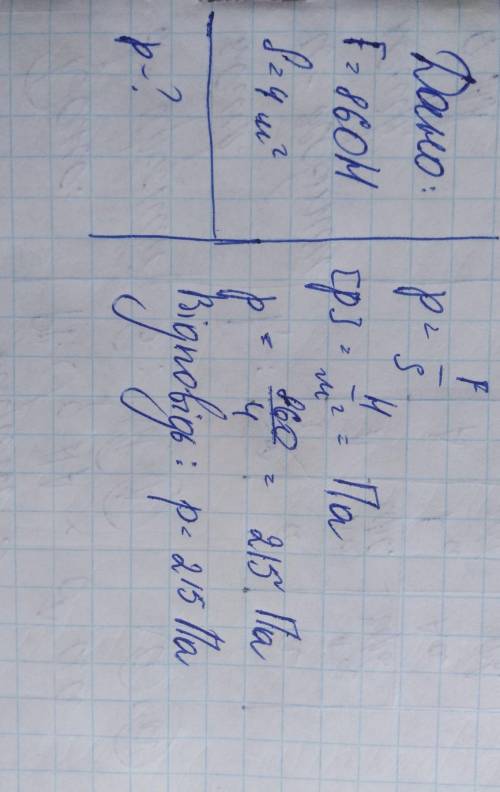 Дано:
F = 860Н
S = 4 м²
p - ?
p = F/S
[p] = Н/м² = Па
p = 860/4 = 215 Па
Відповідь: p = 215 Па